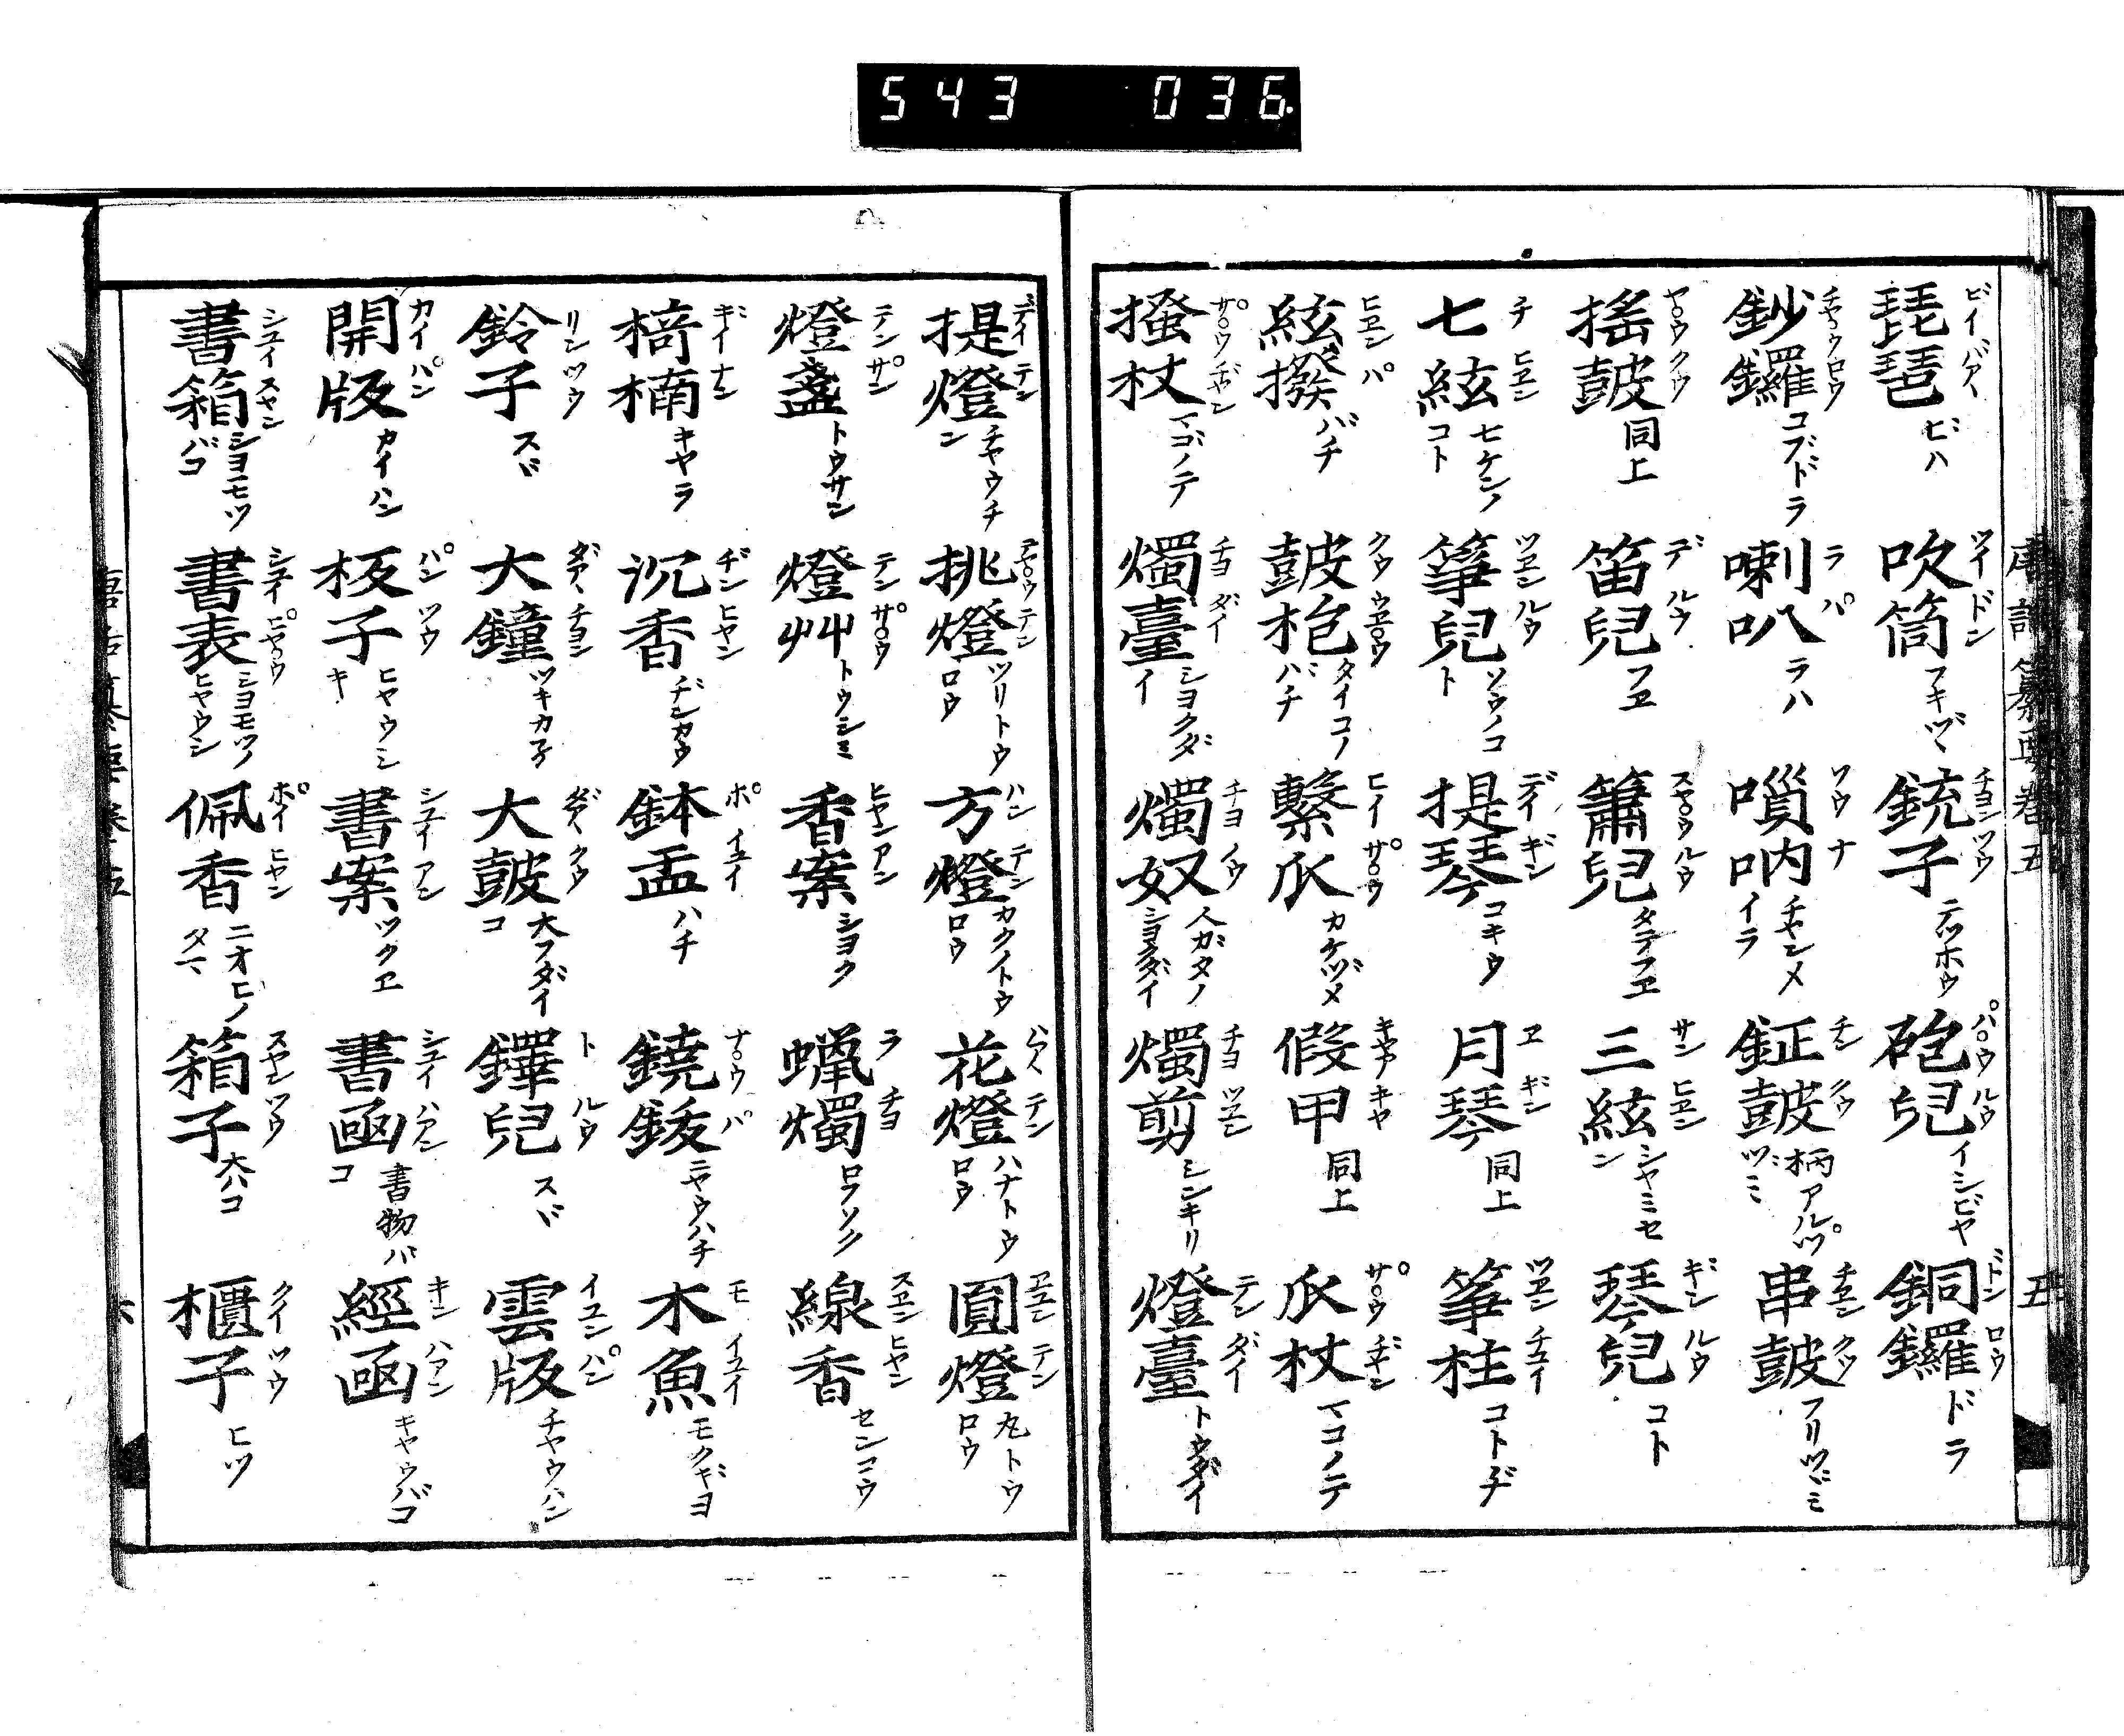 543 036
ビイ バアヽ ツイ ドン チヨン ツウ パ゚ウ ルウ ドン ロウ
琵琶 ビハ 吹筒 フキヅヽ 銃子 テツホウ 砲兒 イシビヤ 銅鑼 ドラ
チヤ○ウ ロウ ラ パ ソウ ナ チン クウ チエン クウ
鈔鑼 コブドラ 喇叭 ラハ 嗩吶 チヤンメイラ 鉦皷 柄アルツヾミ 串皷 フリツヾミ
ヤ○ウ クウ デ ルウ スヤ○ウ ルウ サン ヒエン ギン ルウ
搖皷 同上 笛兒 フヱ 簫兒 タテフヱ 三絃 シヤミセン 琴兒 コト
チ ヒエン ツエン ルウ デイ ギン ヱ ギン ツエン チユイ
七絃 七ケンノコト 箏兒 ソウノコト 提琴 コキウ 月琴 同上 箏柱 コトヂ
ヒエン パ クウ ウ ヒイ サ゚○ウ キヤア キヤ サ゚○ウ ヂヤン
絃撥 バチ 皷枹 タイコノバチ 繋爪 カケヅメ 假甲 同上 爪杖 マコノテ
サ゚○ウ ヂヤン チヨ ダイ チヨ ノウ チヨ ツエン テン ダイ
搔杖 マゴノテ 燭臺 シヨクダイ 燭奴 人ガタノシヨクダイ 燭剪 シンキリ 燈臺 トウダイ
唐話纂要卷五 五
デイ テン テヤ○ウ テン ハン テン ハアヽ テン エン テン
提燈 チヤウチン 挑燈 ツリトウロウ 方燈 カクノトウロウ 花燈 ハナトウロウ 圓燈 丸トウロウ
テン サ゚ン テン サ゚○ウ ヒヤン アン ラ チヨ スエン ヒヤン
燈盞 トウサン 燈艸 トウシミ 香案 シヨク 蝋燭 ロウソク 線香 センコウ
ギイ ナン ヂン ヒヤン ポ イユイ ナ○ウ パ モ イユイ
椅楠 キヤラ 沉香 ヂンカウ 鉢盂 ハチ 鐃鈸 ニヤウハチ 木魚 モクギヨ
リン ツウ ダアヽ チヨン ダアヽ クウ ト ルウ イユン パン
鈴子 スヾ 大鐘 ツキカネ 大皷 大フダイコ 鐸兒 スヾ 雲版 チヤウハン
カイ パン パン ツウ シユイ アン シユイ ハアン キン ハアン
開版 カイハン 板子 ヒヤウシキ 書案 ツクヱ 書凾 書物バコ 經凾 キヤウバゴ
シユイ スヤン シユイ ピヤ○ウ ポイ ヒヤン スヤン ツウ クイ ツウ
書箱 シヨモツバコ 書表 シヨモツノヒヤウシ 佩香 ニオヒノタマ 箱子 大ハコ 櫃子 ヒツ
六